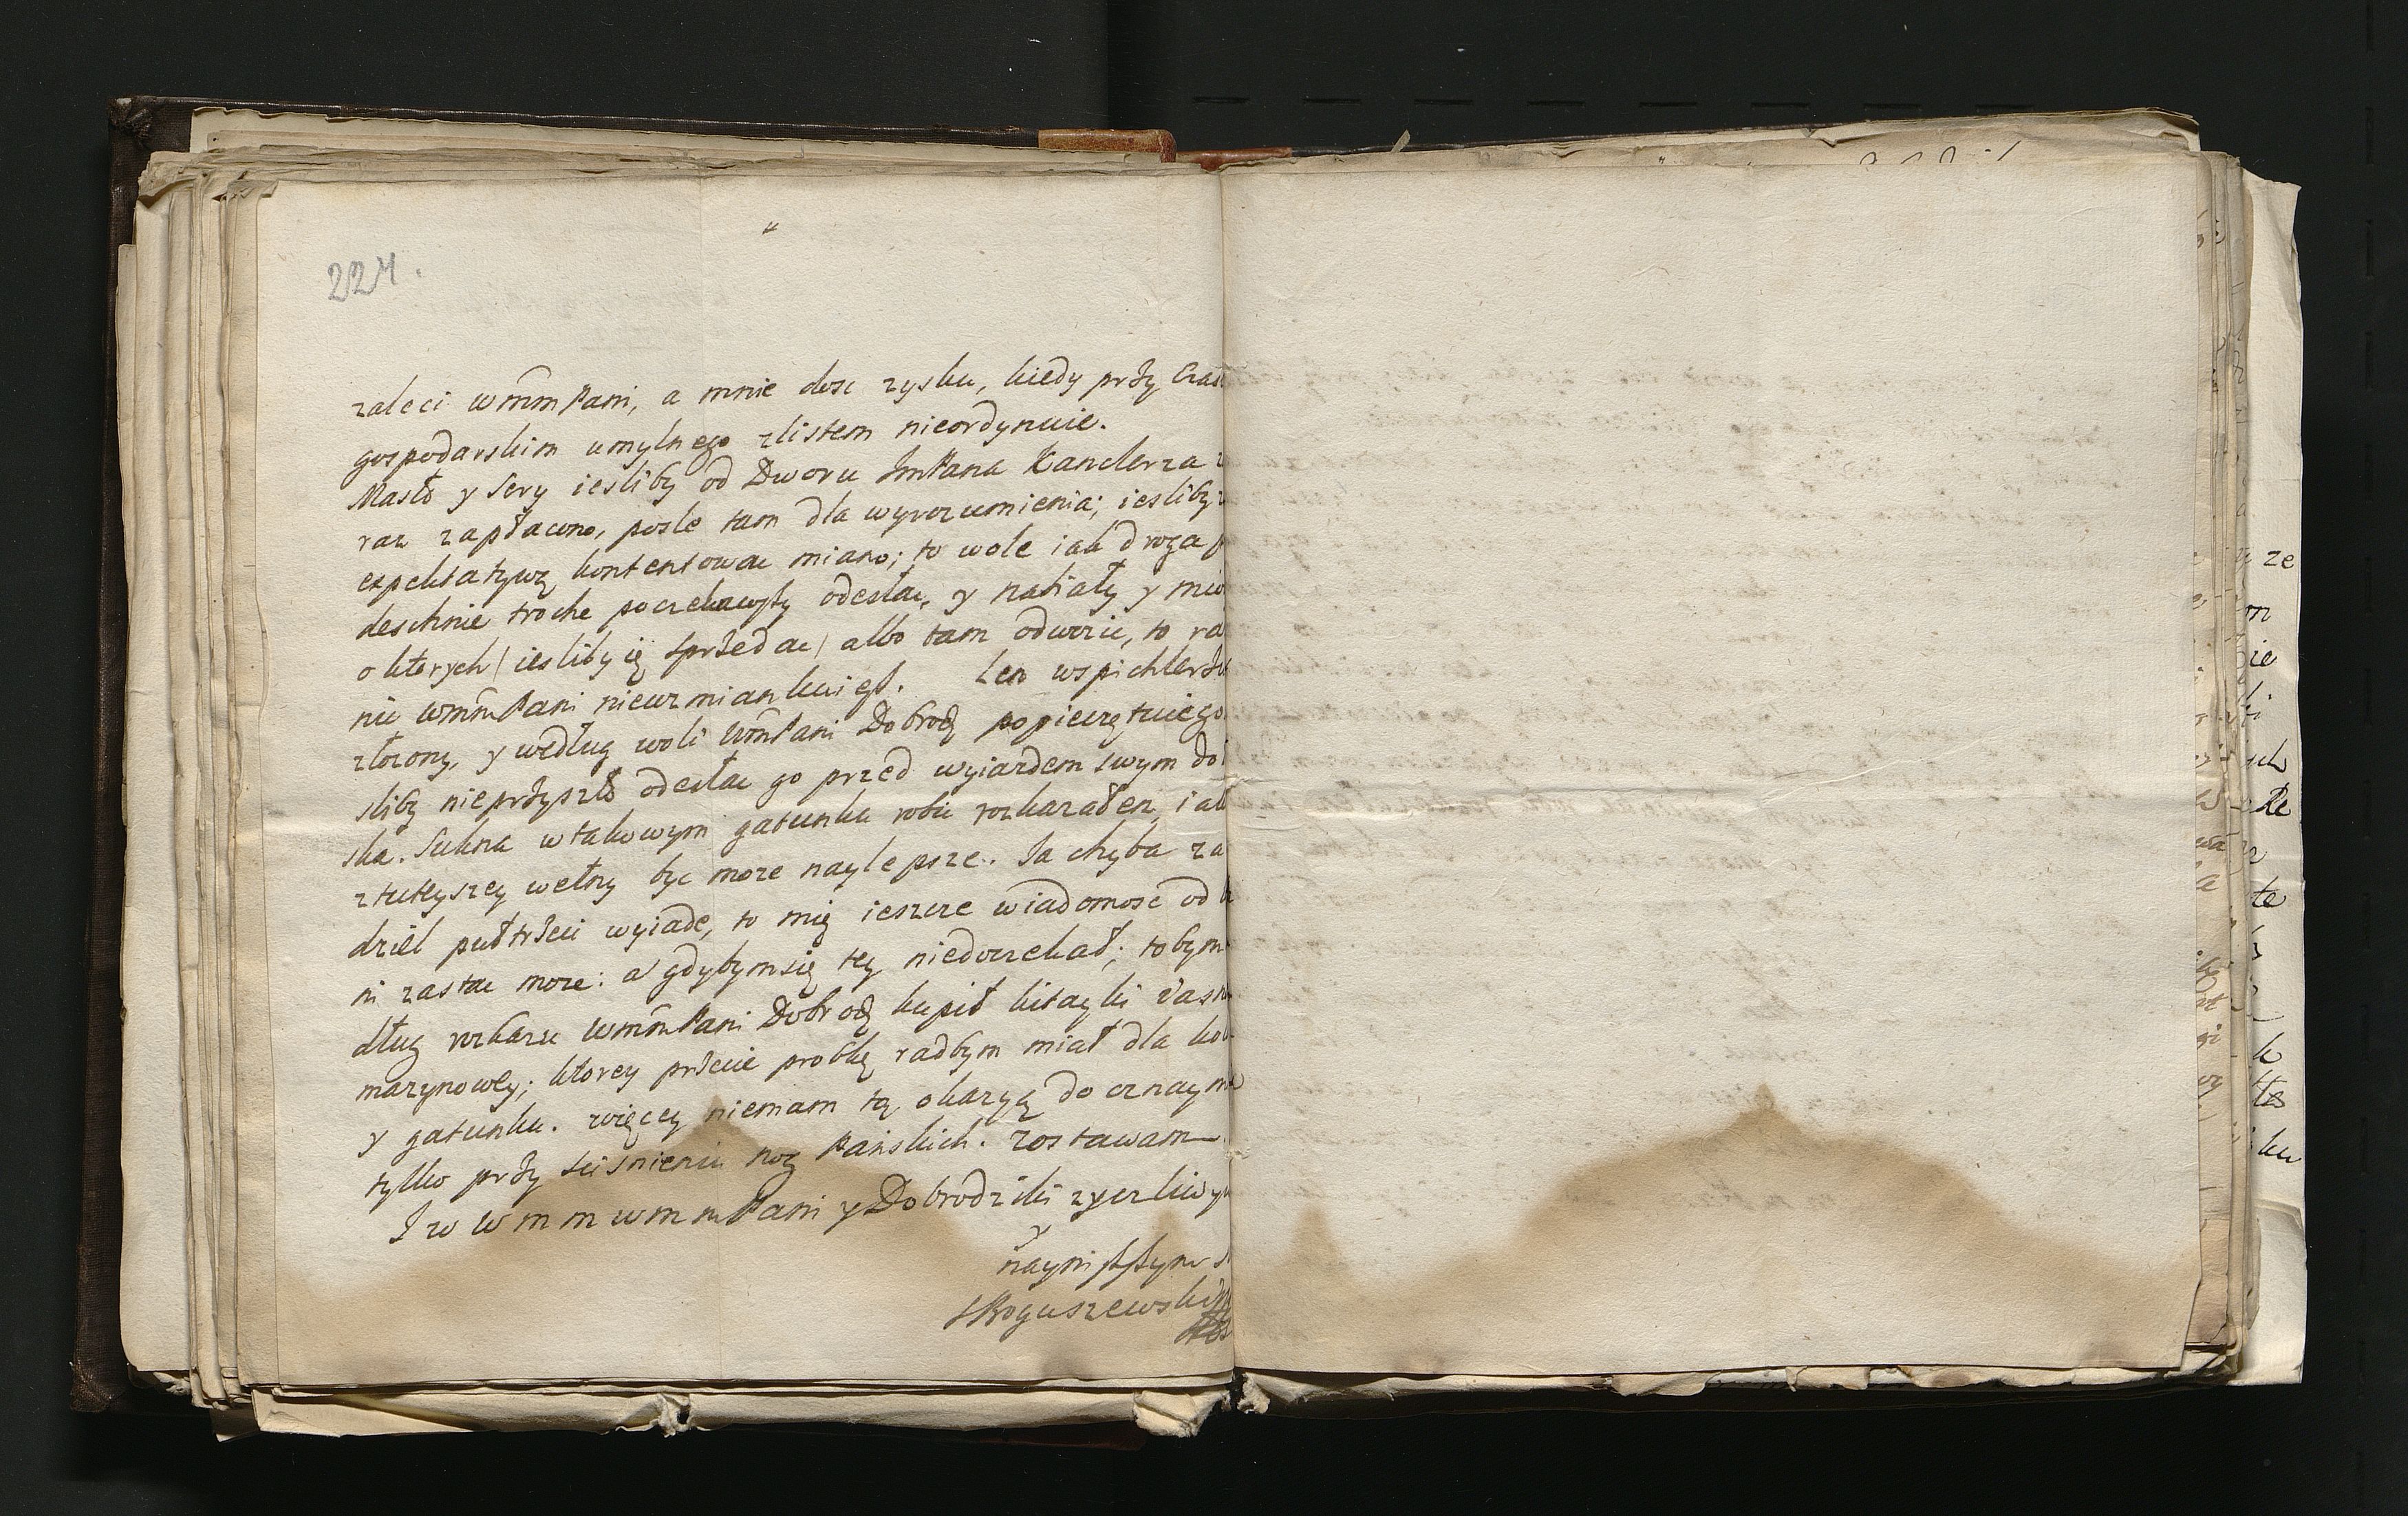 224.
zaleci WMM Pani, a mnie dosc zysku, kiedy przy Czas
gospodarskim umylnego zlistem nieordynuie.
Masło y Sery iesliby od Dworu ImPana Kanclerza
raz zapłacono, posle tam dla wyrozumienia; iesliby
expektatywą kontentowac miano; to wole iak droga
deschnie troche poczekawszy odesłac, y nabiały y mio
o ktorych / iesliby ię sprzedac / albo tam odwozic, to ra
nie WMM Pani niewzmiankuiesz. Len wspichlerzu
złozony, y według woli WM Pani Dobrodz popieczętuiego
sliby nieprzyszło odesłac go przed wyiazdem swym do
ska. Sukna wtakowym gatunku robic rozkazałem, iak
ztuteyszey wełny byc moze naylepsze. Ja chyba za
dziel pułtrzeci wyiade, to mię ieszcze wiadomosc od
ni zastac moze: a gdybymsię tey niedoczekał; tobym
dług rozkazu WMM Pani Dobrodz kupił kitayki iasn
mazynowey; ktorey przecie probkę radbym miał dla kol
y gatunku. więcey niemam tą okazyą do oznaym
tylko przy sciśnieniu nog Pańskich. zostawam
J w W m m w m m Pani y Dobrodziki zyczliwy
y
nayniszszym s
SBoguszewski